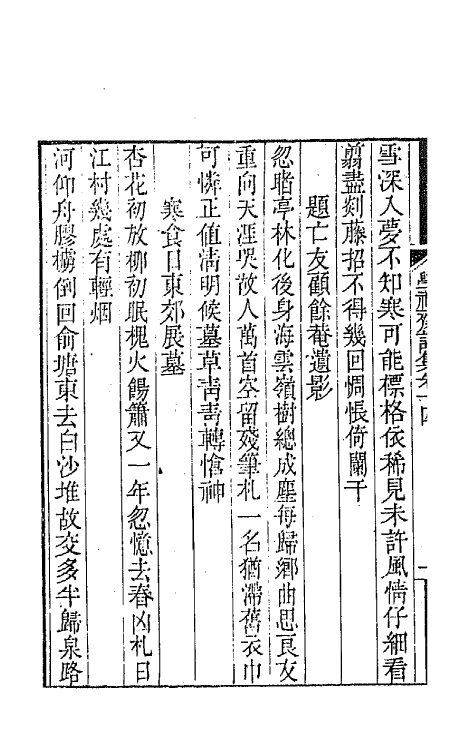 學福齋詩集卷十四
雪深入夢不知寒可能標格依稀見未許風情仔細看
翦盡剡藤招不得幾回惆悵倚闌干
題亡友顧餘菴遺影
忽睹亭林化後身海雲嶺樹總成塵每歸鄉曲思良友
重向天涯哭故人萬首空留殘筆札一名猶滯舊衣巾
可憐正值清明候墓草靑靑轉愴神
寒食日東郊展墓
杏花初放柳初眠槐火餳簫又一年忽憶去春凶札日
江村幾處有輕烟
河仰舟膠櫂倒回俞塘東去白沙堆故交多半歸泉路